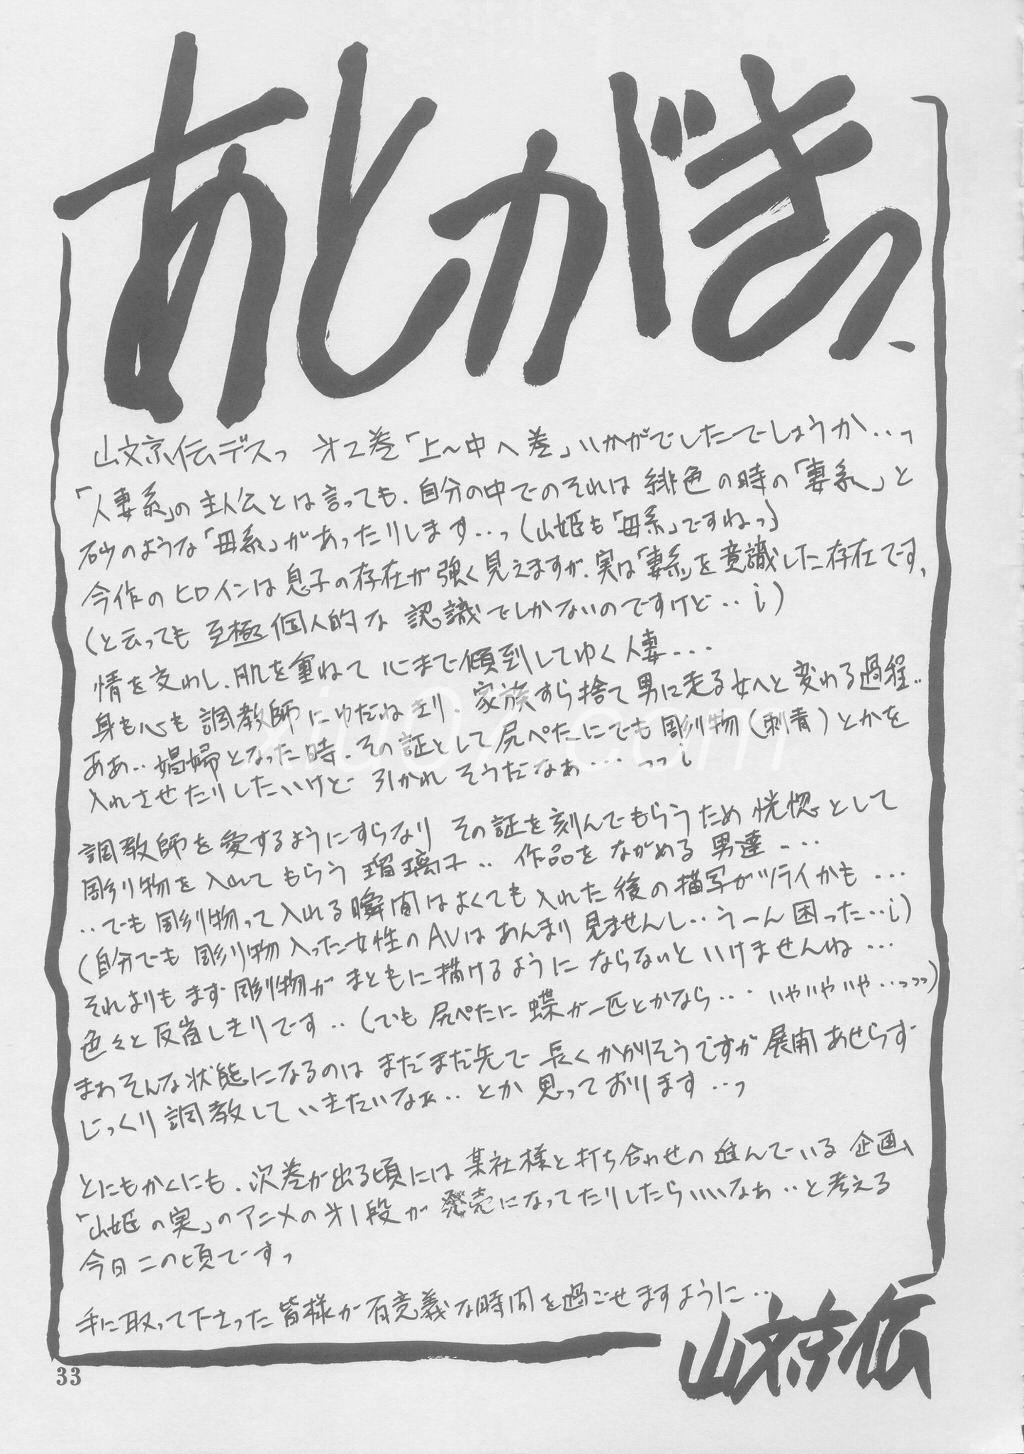 あとがきっ、
山文京伝デスっ 才2巻「上〜中へ巻」いかがでしたでしょうか‥っ
「人妻系」の主人公とは言っても、自分の中でのそれは緋色の時の「妻系」と
砂のような「母系」があったりします…っ(山姫も「母系」ですねっ)
今作のヒロインは息子の存在が強く見えますが、実は「妻系」を意識した存在です、
(と云っても至極個人的な認識でしかないのですけど‥i)
情を交わし、肌を重ねて心まで傾倒してゆく人妻...
身も心も調教師にゆだねきり、家族すら捨て男に走る女へと変わる過程‥
ああ‥娼婦となった時、その証として尻ぺたにでも彫り物(刺青)とかを
入れさせたりしたいけど引かれそうだなぁ…っっi
調教師を愛するようにすらなり その証を刻んでもらうため恍惚として
彫り物を入れてもらう瑠璃子‥作品をながめる男達...
‥でも彫り物って入れる瞬間はよくても入れた後の描写がツライかも...
(自分でも彫り物入った女性のAVはあんまり見ませんし‥うーん困った‥i)
それよりもまず彫り物がまともに描けるようにならないといけませんね...
色々と反省しきりです‥(でも尻ぺたに蝶が一匹とかなら… いやいやいや‥っっっ)
まわそんな状態になるのはまだまだ先で長くかかりそうですが展開あせらず
じっくり調教していきたいなぁ‥とか思っております‥っ
とにもかくにも、次巻が出る頃には某社様と打ち合わせの進んでいる企画、
「山姫の実」のアニメの才1段が発売になってたりしたらいいなぁ‥と考える
今日この頃ですっ
手に取って下さった皆様が有意義な時間を過ごせますように‥
山文京伝
33